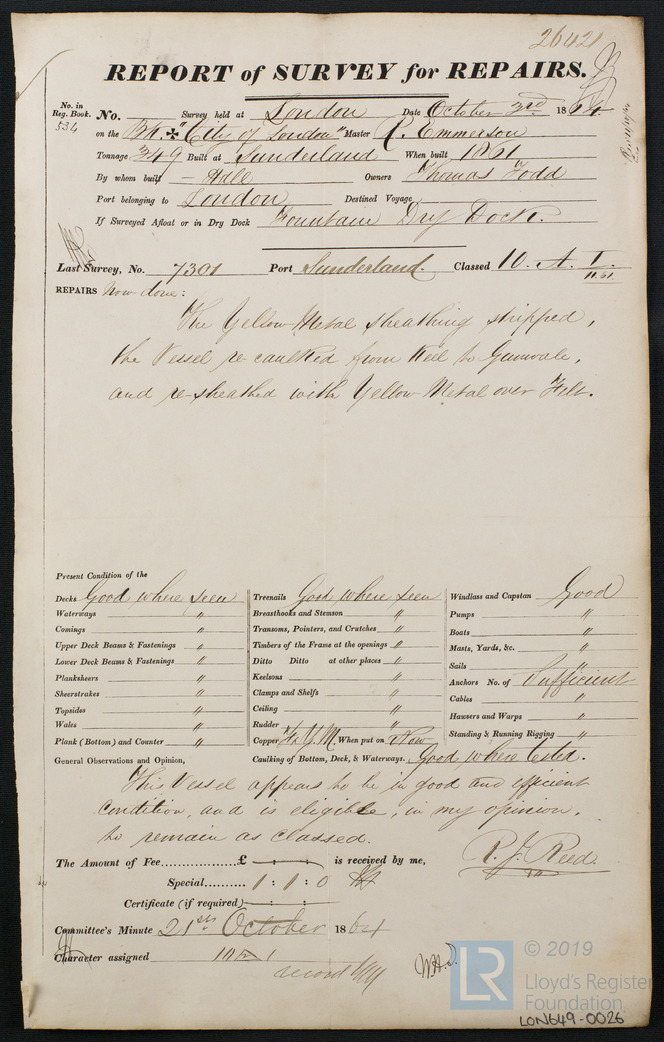 26421
REPORT of SURVEY for REPAIRS.
No. in Reg. Book. 534
No. Survey held at London Date October 3rd 1864
on the Bk "City of London" Master C. Emmerson
Tonnage 349 Built at Sunderland When built 1861
By whom built Hall Owners Thomas Todd
Port belonging to London Destined Voyage
If Surveyed Afloat or in Dry Dock Fountain Dry Dock.
Last Survey, No. 7301 Port Sunderland. Classed 10. A. 1. 11.61
REPAIRS Now done:
The Yellow Metal sheathing stripped,
the Vessel re-caulked from Keel to Gunwale,
and re-sheathed with Yellow Metal over Felt.
Present Condition of the
Decks Good where seen Treenails Good where seen Windlass and Capstan Good
Waterways " Breasthooks and Stemson " Pumps "
Comings " Transoms, Pointers, and Crutches " Boats "
Upper Deck Beams & Fastenings " Timbers of the Frame at the openings " Masts, Yards, &c. "
Lower Deck Beams & Fastenings " Ditto Ditto at other places " Sails "
Planksheers " Keelsons " Anchors No. of Sufficient
Sheerstrakes " Clamps and Shelfs " Cables "
Topsides " Ceiling " Hawsers and Warps "
Wales " Rudder " Standing & Running Rigging "
Plank (Bottom) and Counter " Copper F. Y. M. When put on Now
General Observations and Opinion, Caulking of Bottom, Deck, & Waterways. Good where tested.
This Vessel appears to be in good and efficient
condition, and is eligible, in my opinion,
to remain as classed.
R. J. Reed.
The Amount of Fee £ - : - : is received by me,
Special 1 : 1 : 0
Certificate (if required) - : - :
Committee's Minute 21st October 1864
Character assigned
record
© 2019
LR Lloyd's Register
Foundation
LON649-0026